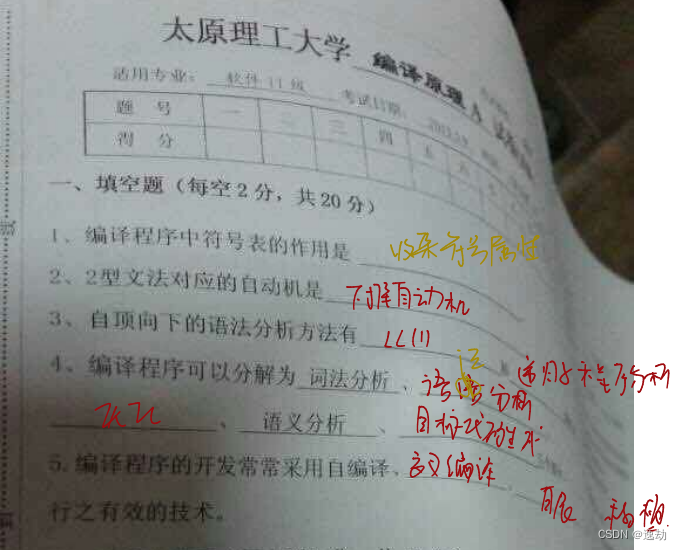 太原理工大学 编译原理 A 试卷
适用专业: 软件11级 考试日期:
题 号 一 二 三 四 五 六
得 分
一、填空题(每空2分,共20分)
1、编译程序中符号表的作用是 收集符号属性
2、2型文法对应的自动机是 下推自动机
3、自顶向下的语法分析方法有 LL(1)
4、编译程序可以分解为 词法分析 、 语法分析
、 语义分析 、 目标代码生成
5.编译程序的开发常常采用自编译、 交叉编译 、 自展 移植
行之有效的技术。
CSDN @逸动